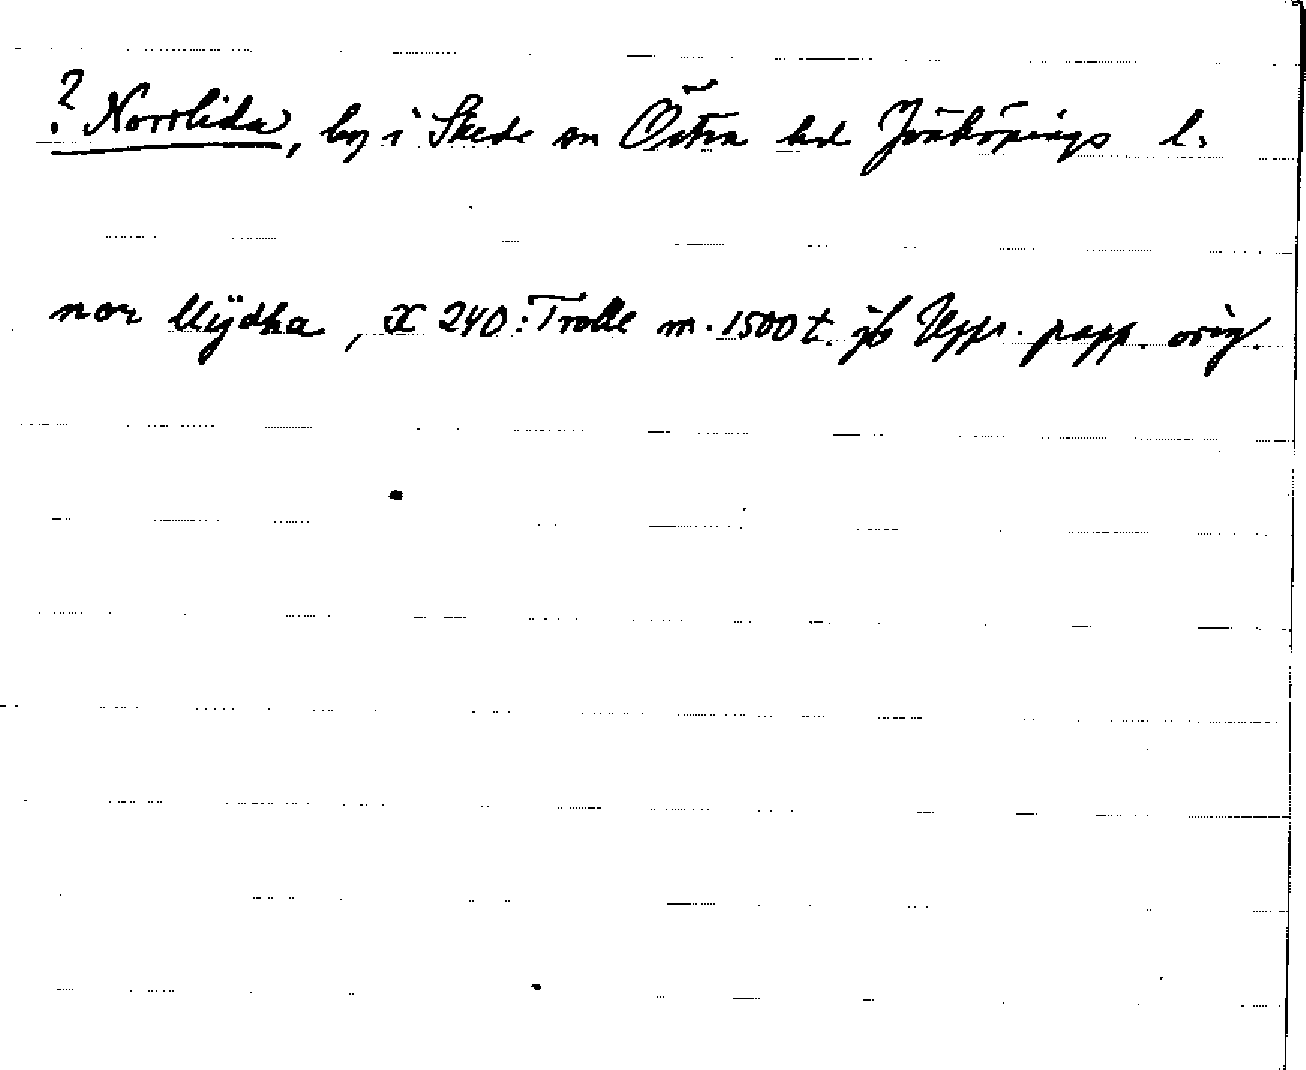 ? Norrlida, by i Skede sn Östra hd Jönköpings l.
nor lIÿdha, X 240: Trolle m. 1500 t. jb Upps. papp. orig.